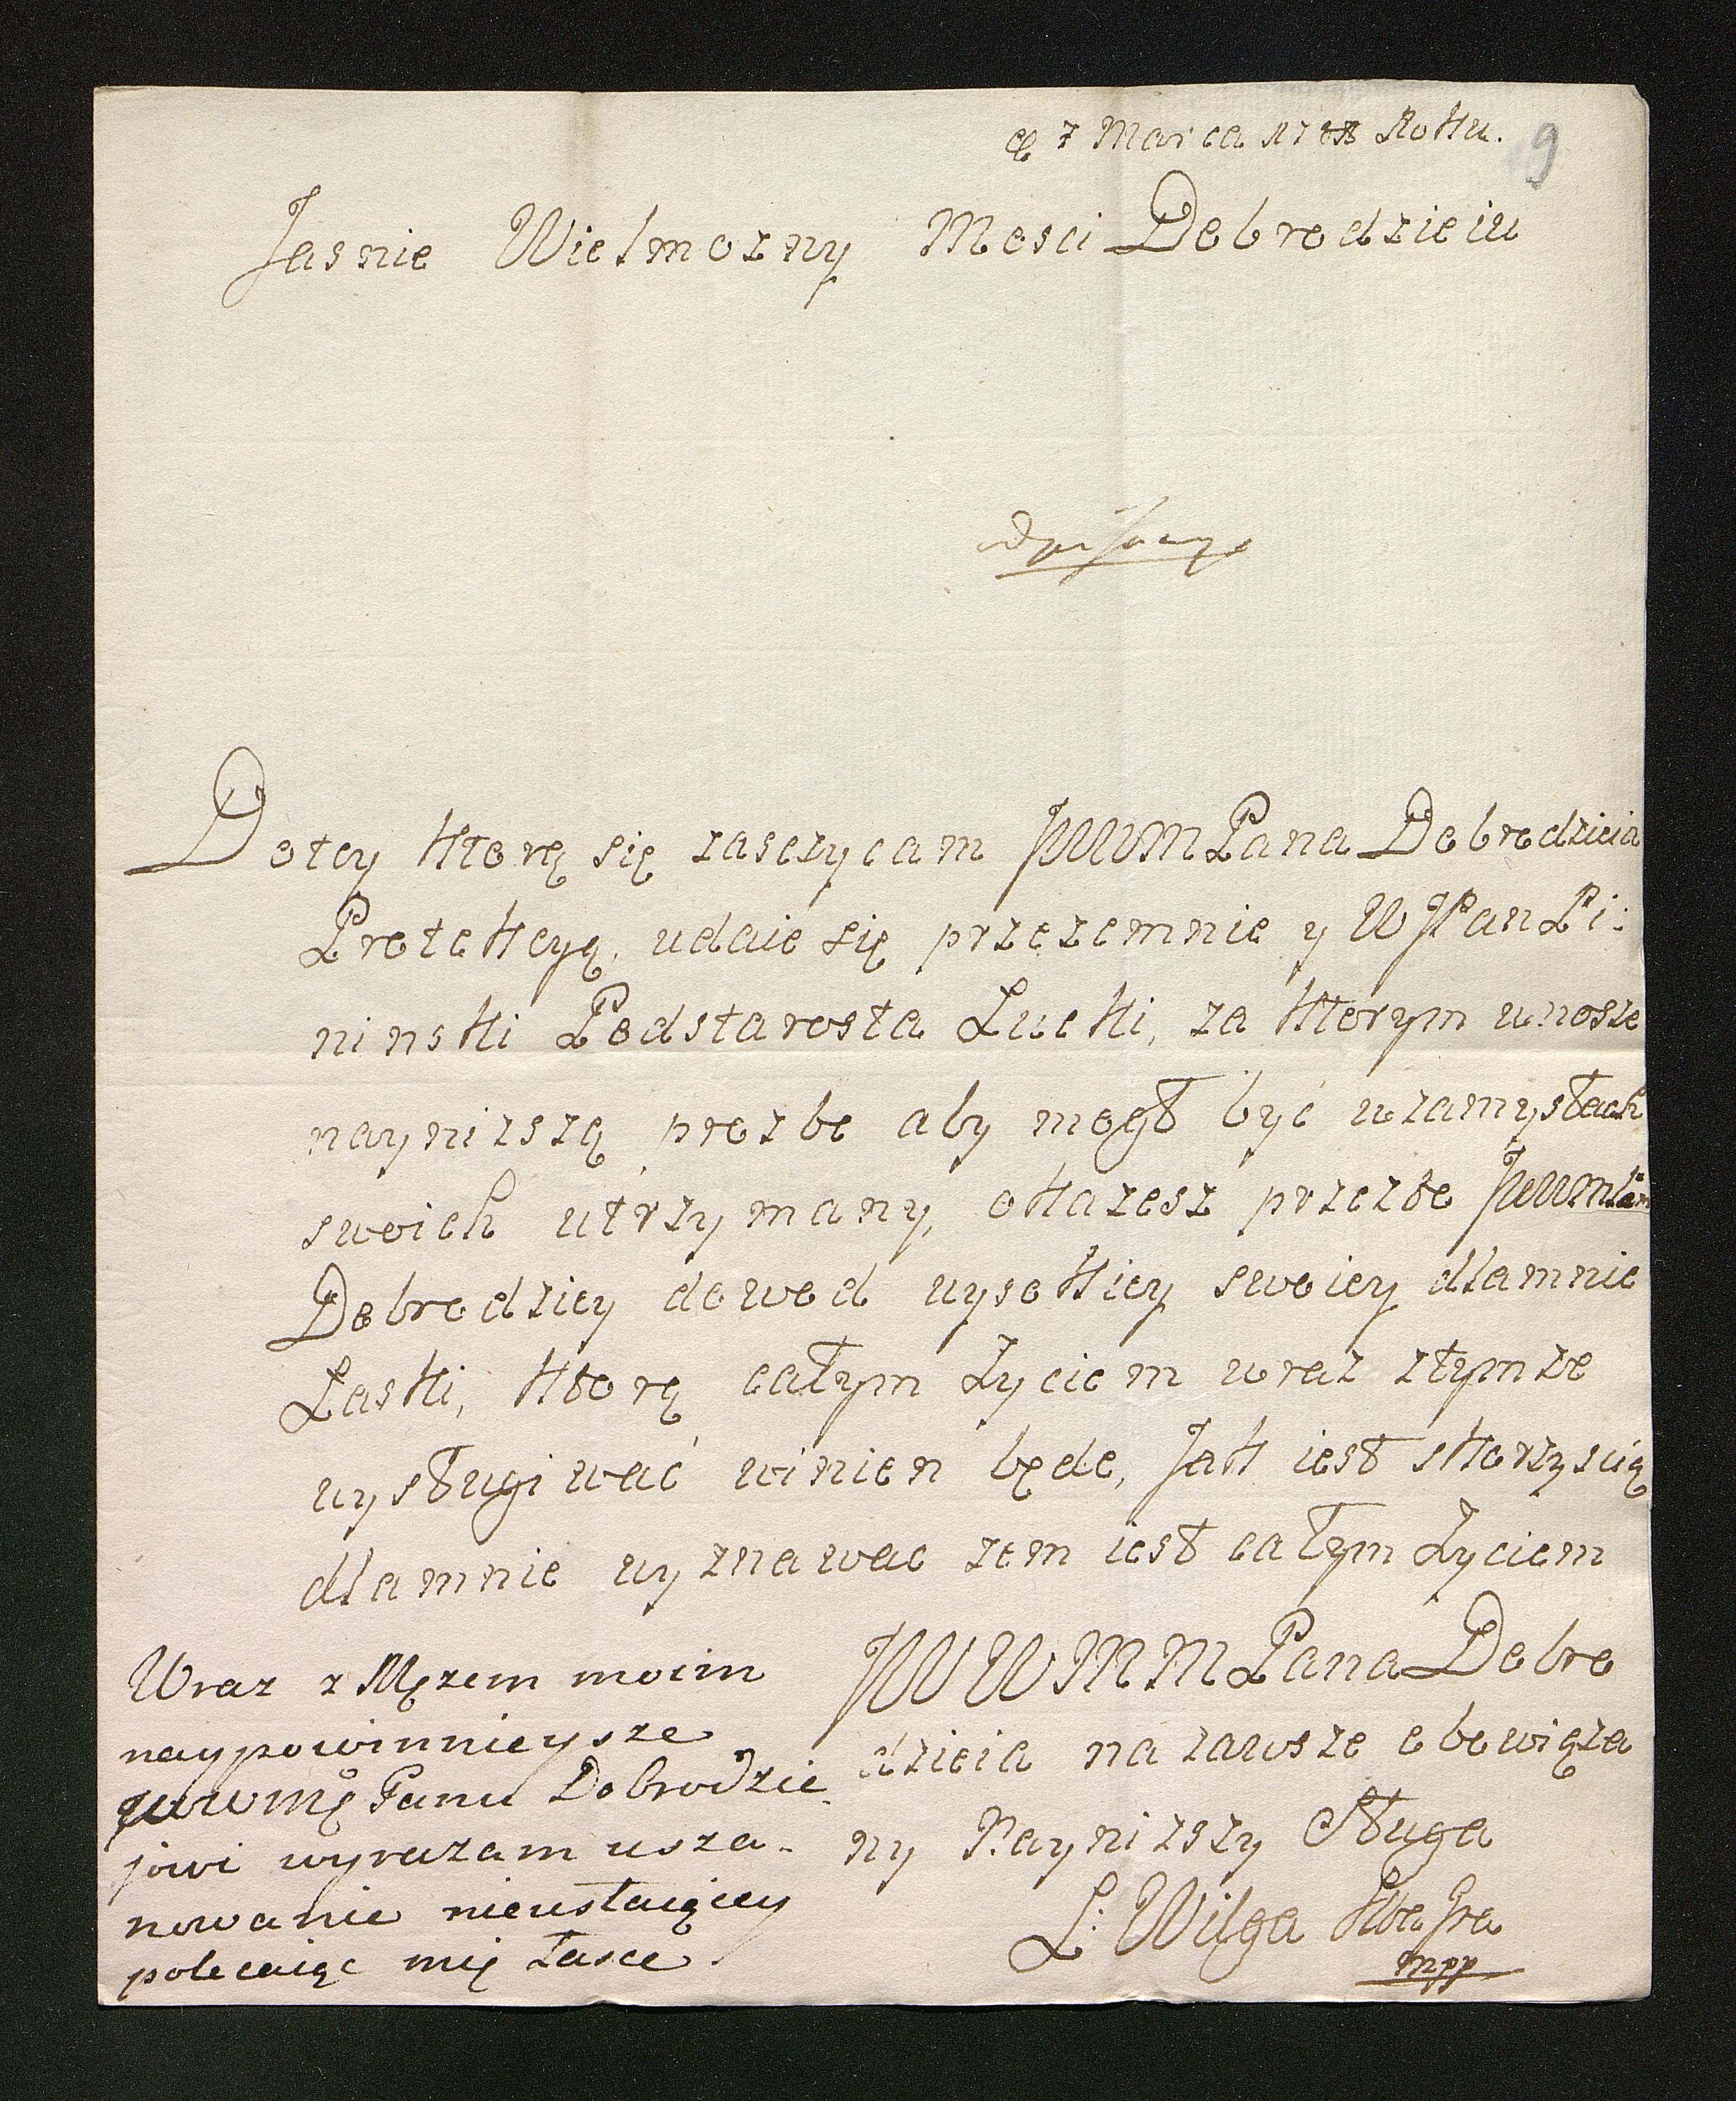 7 Marca Roku. 9
Jasnie Wielmozny Mosci Dobrodzieiu
odpisany
Dotey ktorą się zasczycam JWWMPana Dobrodzieia
Protekcyą, udaie się przezemnie y WJPan Pi:
ninski Podstarosta Lucki, za ktorym wnosze
naynizszą prozbe aby mogł być wzamysłach
swoich utrzymany, okazesz przezto JWWMPan
Dobrodziey dowod wysokiey swoiey dlamnie
Łaski, ktorą całym Życiem wraz ztymze
wysługiwać winien będe, Jak iest skorzyscią
dlamnie wyznawac zem iest całym Życiem
JWWMMPana Dobro
dzieia na zawsze obowiąza
ny Naynizszy Sługa
L: Wilga
mpp
Wraz z Męzem moim
naypowinnieysze
JWWMę Panu Dobrodzie
jowi wyrazam usza-
nowanie nieustaiącey
polecaiąc mię Łasce.